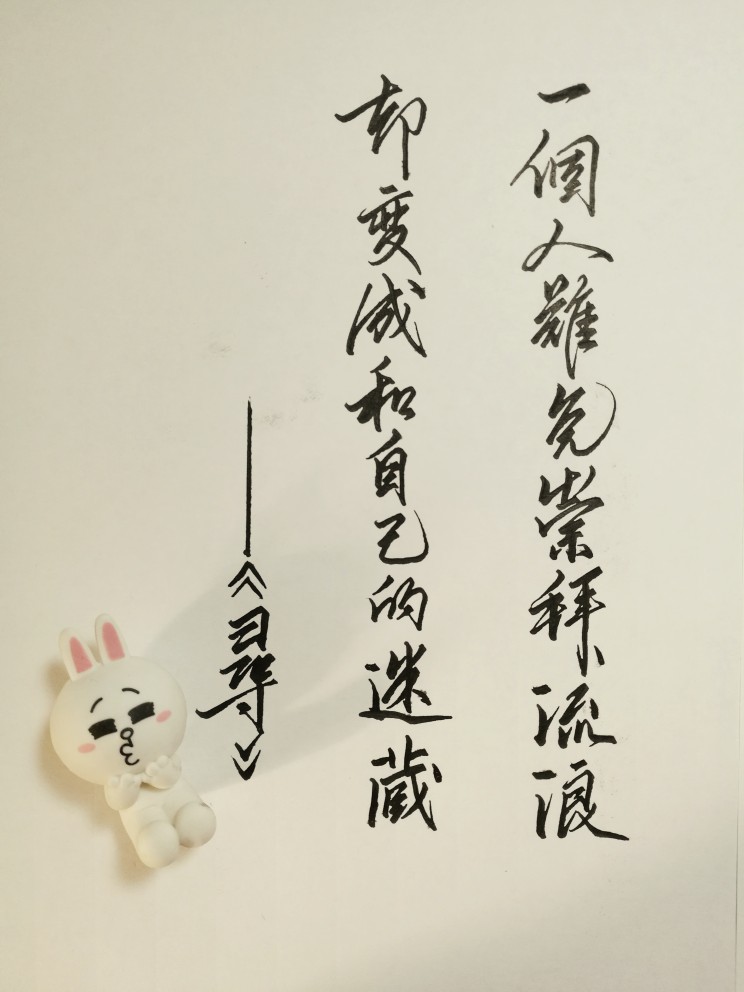 一個人難免崇拜流浪
却变成和自己的迷藏
——《尋》